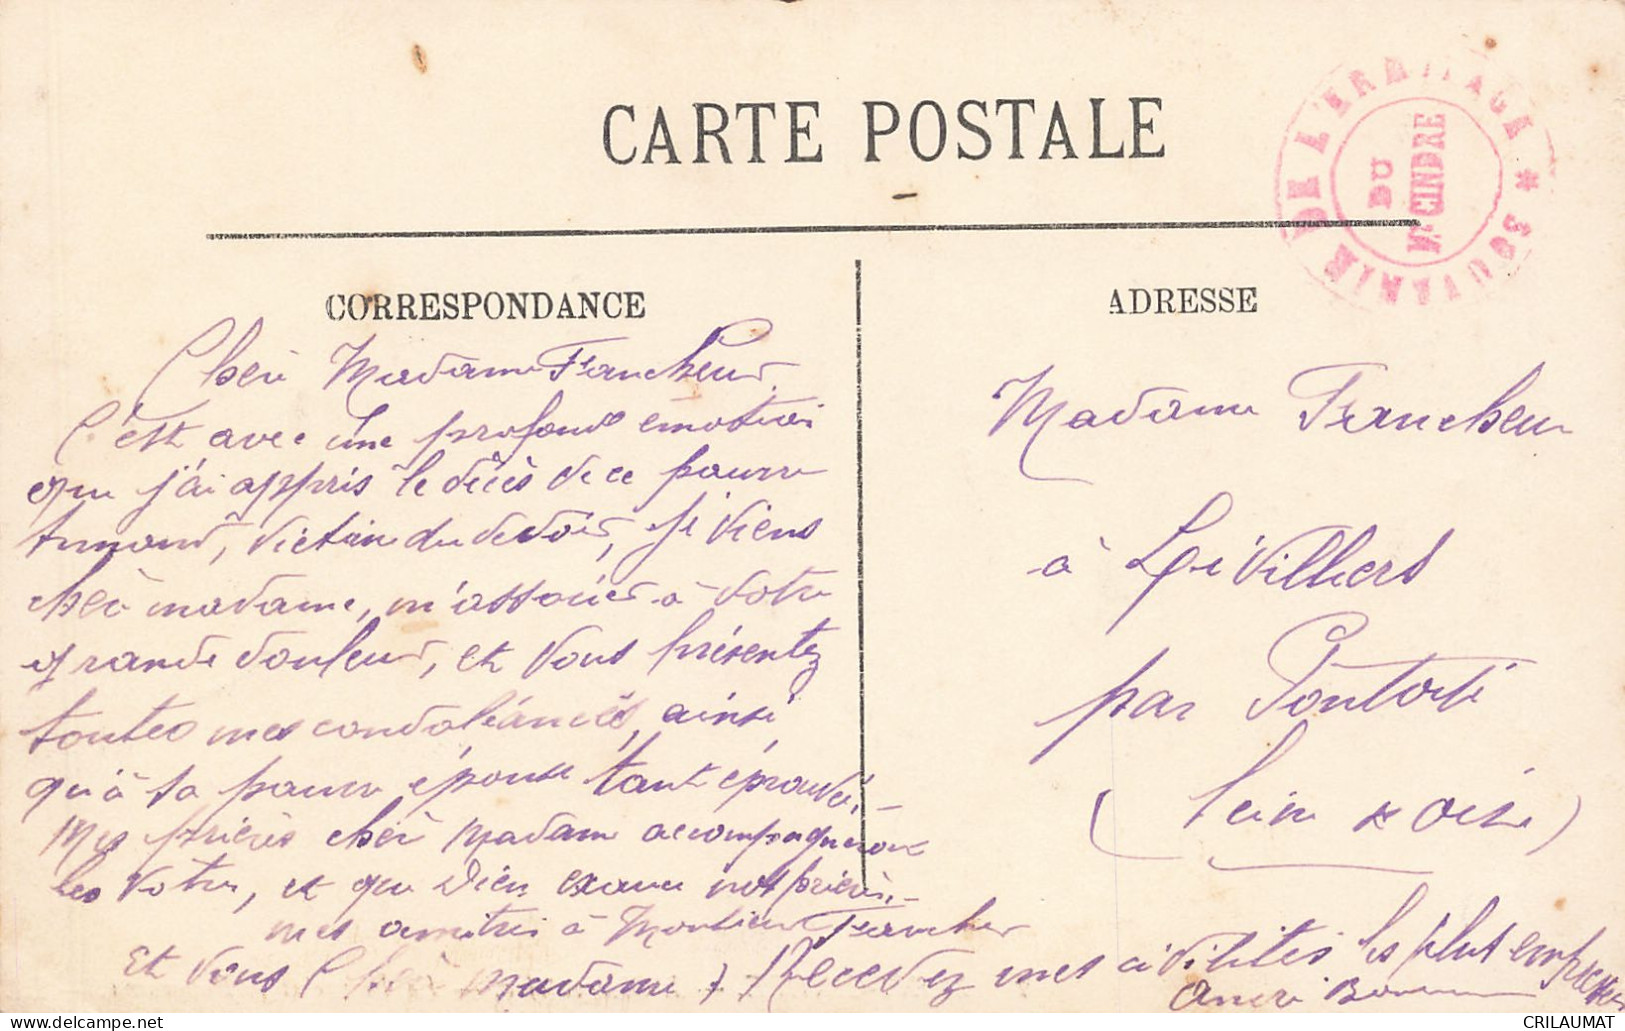 CARTE POSTALE
SOUVENIR DE L'ERMITAGE *
DU
Mt CINDRE
CORRESPONDANCE
ADRESSE
Chère Madame Francheur
C'est avec une profonde émotion
que j'ai appris le décès de ce pauvre
Armand, victime du devoir, je viens
chère madame, m'associer à votre
grande douleur, et vous présentez
toutes mes condoléances, ainsi
qu'à sa pauvre épouse tant éprouvée,
Mes prières chère Madame accompagneront
les votre, et que Dieu exauce nos prières,
mes amitiés à Monsieur Francheur
et vous Chère madame, Recevez mes civilités les plus empressées
André
Madame Francheur
à Livilliers
par Pontoise
(Seine & Oise)
CRILAUMAT